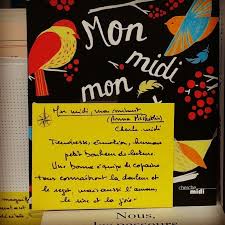 Mon
midi
mon
Mon midi, mon minuit
(Anna McPartlin)
Cherche midi
Tendresse, émotion, humour
petit bonheur de lecture.
Une bonne équipe de copains
tous connaîtront la douleur et
le rejet mais aussi l'amour,
le rire et la joie
cherche
midi
Nous,